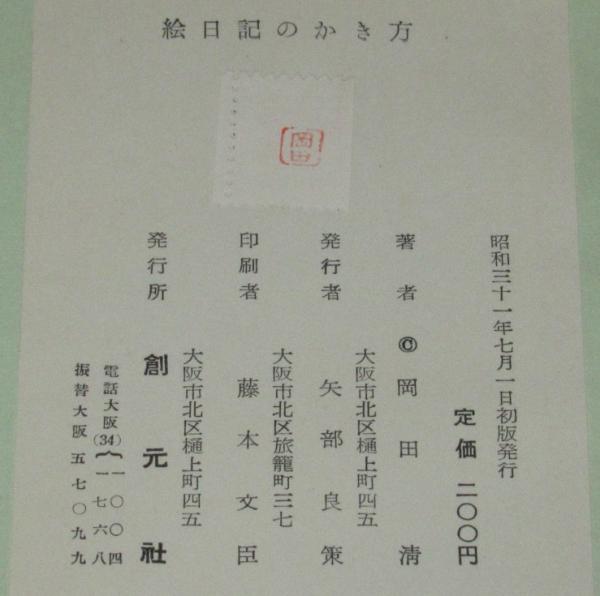 絵日記のかき方
岡田
昭和三十一年七月一日初版発行
定価 二〇〇円
著者 ©岡田清
大阪市北区樋上町四五
発行者 矢部良策
大阪市北区旅籠町三七
印刷者 藤本文臣
大阪市北区樋上町四五
発行所 創元社
電話大阪(34){一〇〇四
一七六八
振替大阪五七〇九九